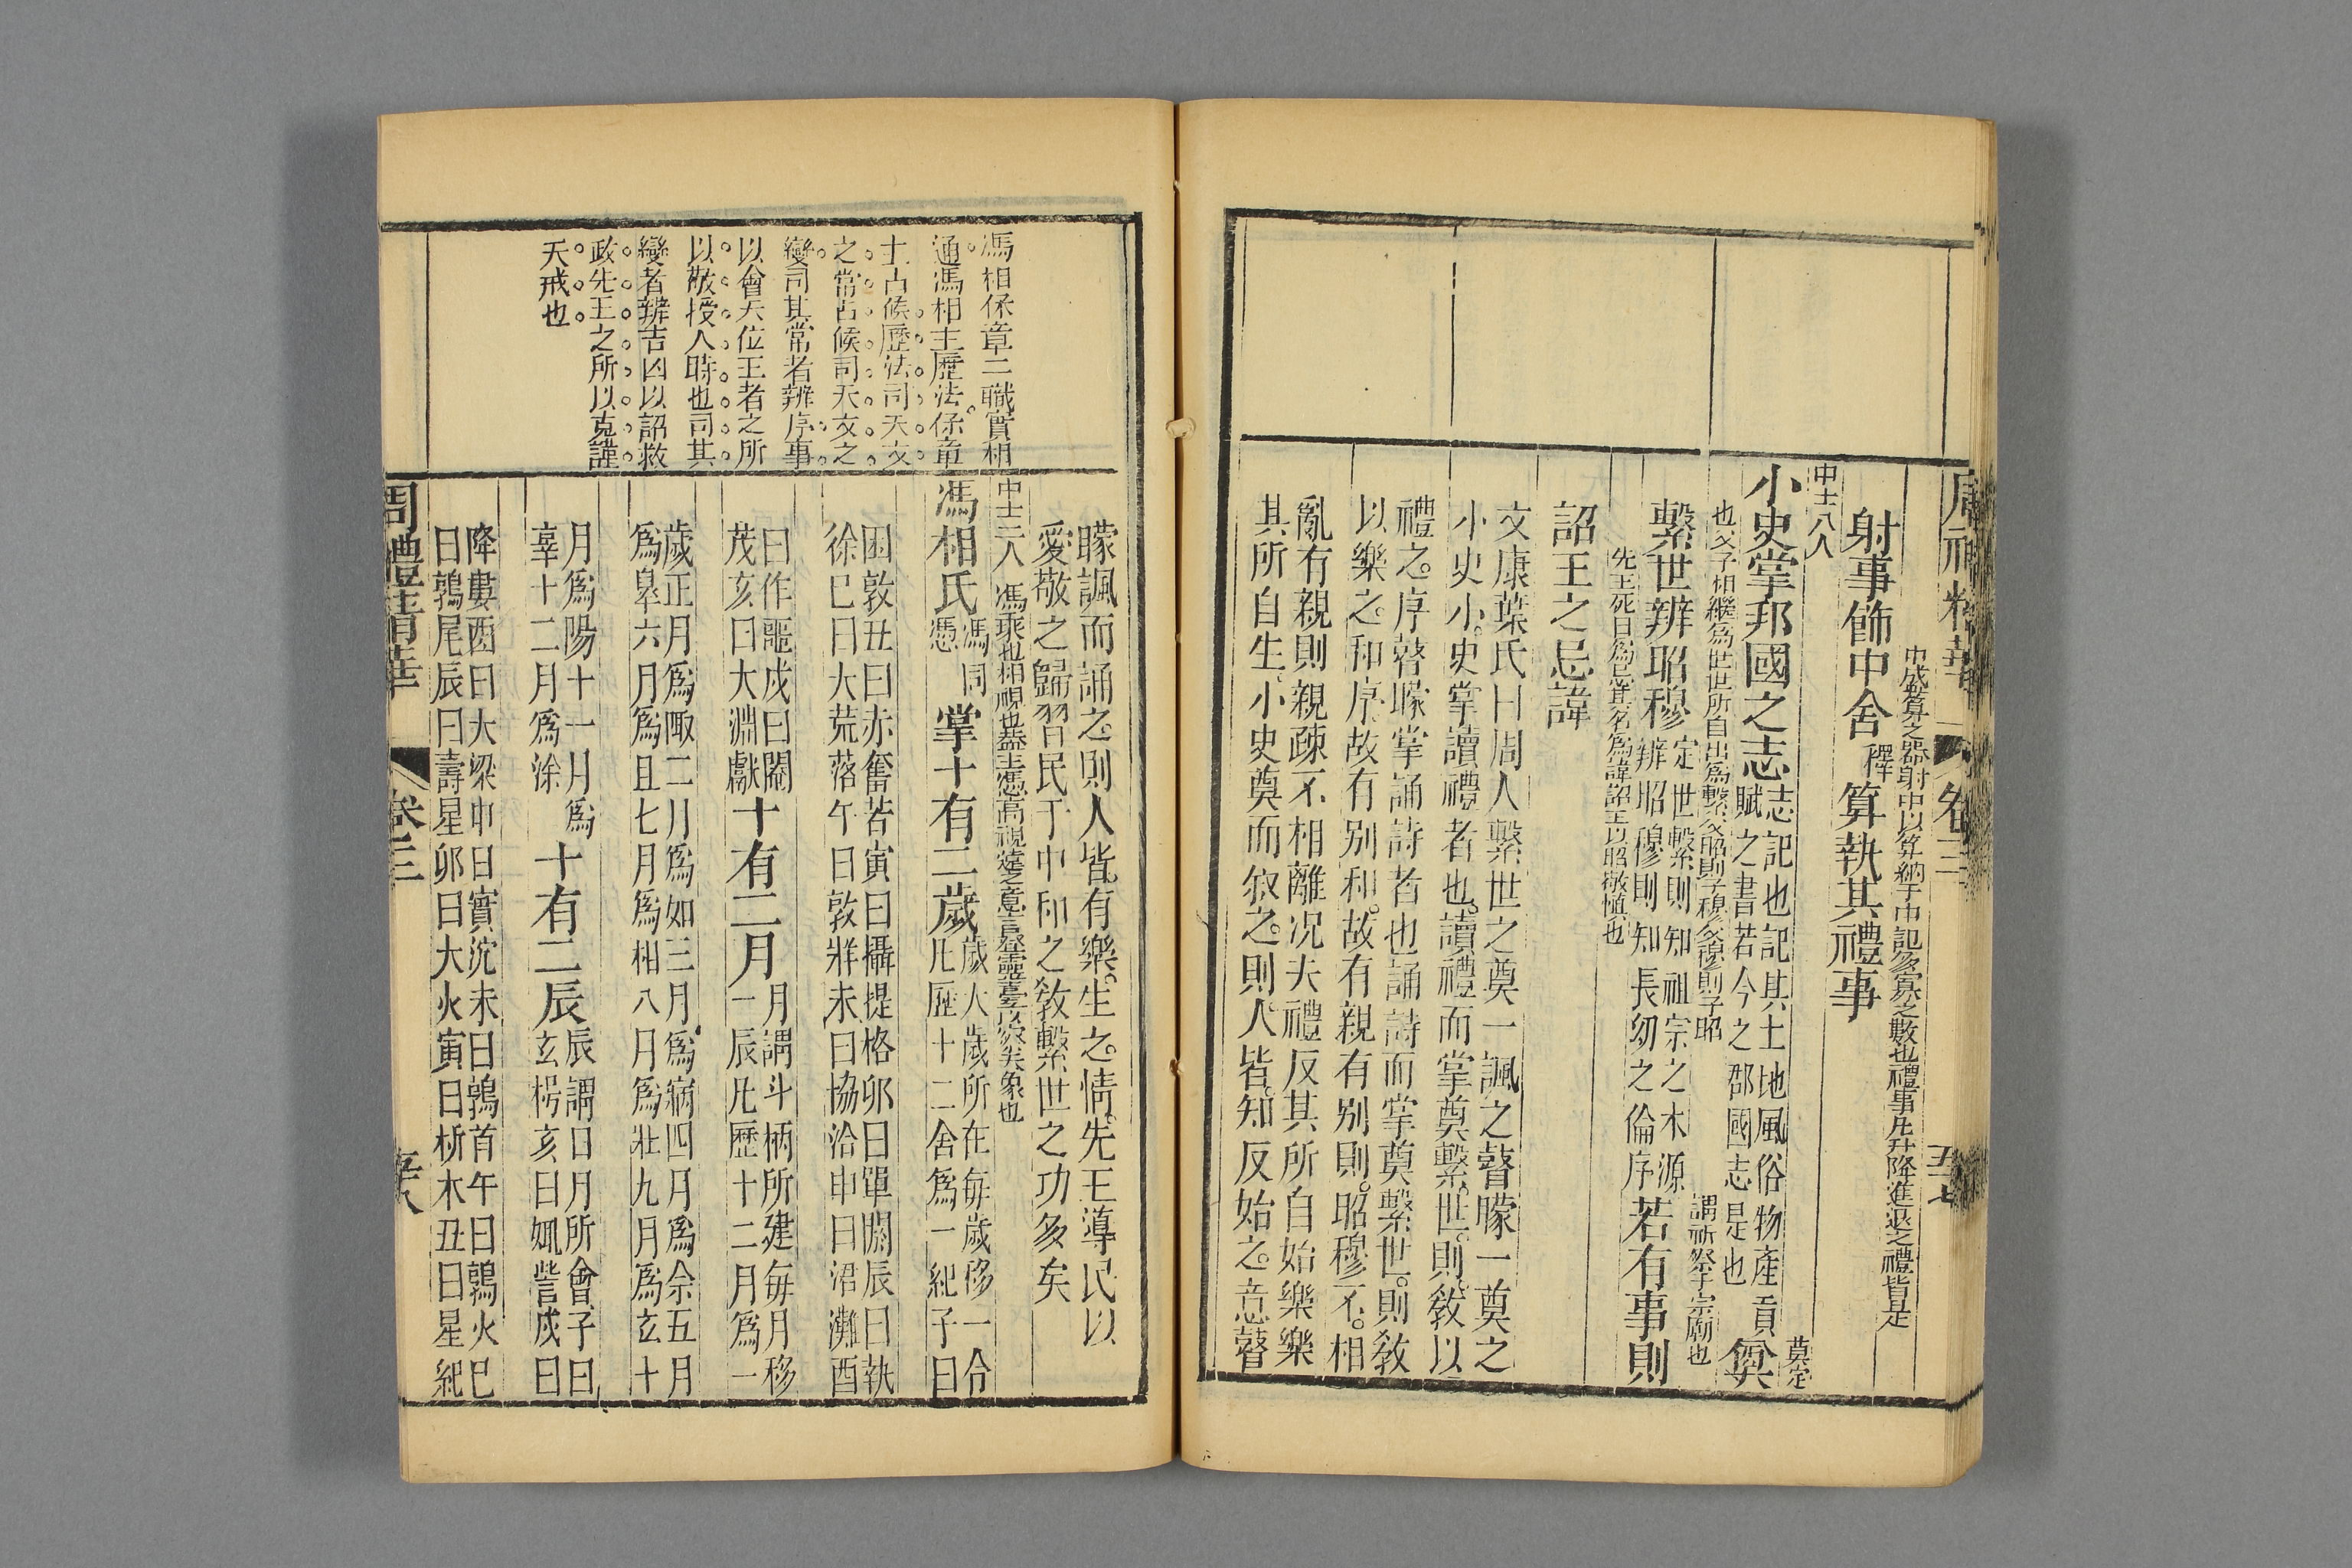 周禮精華
卷三
五十七
中成算之器射中以算納于中記多寡之數也禮事凡升降進退之禮皆是
射事飾中舍
釋
算執其禮事
中士八人
奠定
小史掌邦國之志
志記也記其土地風俗物產貢
賦之書若今之郡國志是也
奠
也父子相繼爲世世所自出爲繫父昭則子穆父穆則子昭
謂祈祭于宗廟也
繫世辨昭穆
定世繫則知祖宗之木源
辨昭穆則知長幼之倫序
若有事則
先王死日爲忌其名爲諱詔王以昭敬愼也
詔王之忌諱
文康葉氏曰周人繫世之奠一諷之瞽矇一奠之
小史小史掌讀禮者也讀禮而掌奠繫世則敎以
禮之序瞽矇掌誦詩者也誦詩而掌奠繫世則敎
以樂之和序故有别和故有親有别則昭穆不相
亂有親則親疎不相離况夫禮反其所自始樂樂
其所自生小史奠而敘之則人皆知反始之意瞽
矇諷而誦之則人皆有樂生之情先王導民以
愛敬之歸習民于中和之敎繫世之功多矣
馮相保章二職實相
通馮相主歷法保章
主占候歷法司天文
之常占候司天文之
變司其常者辨序事
以會天位王者之所
以敬授人時也司其
變者辨吉凶以詔救
政先王之所以克謹
天戒也
中士二人
馮乘也相視也蓋主憑高視遠之意言登靈臺以察天象也
馮相氏
馮同
憑
掌十有二歲
歲大歲所在每歲移一合
凡歷十二舍爲一紀子曰
困敦丑曰赤奮若寅曰攝提格卯曰單閼辰曰執
徐巳曰大荒落午曰敦牂未曰協洽申曰涒灘酉
曰作噩戌曰閹
茂亥曰大淵獻
十有二月
月謂斗柄所建每月移
一辰凡歷十二月爲一
歲正月爲陬二月爲如三月爲寎四月爲余五月
爲皋六月爲且七月爲相八月爲壯九月爲玄十
月爲陽十一月爲
辜十二月爲涂
十有二辰
辰謂日月所會子曰
玄枵亥曰娵訾戌曰
降婁酉曰大梁申曰實沈未曰鶉首午曰鶉火巳
曰鶉尾辰曰壽星卯曰大火寅曰析木丑曰星紀
周禮精華
卷三